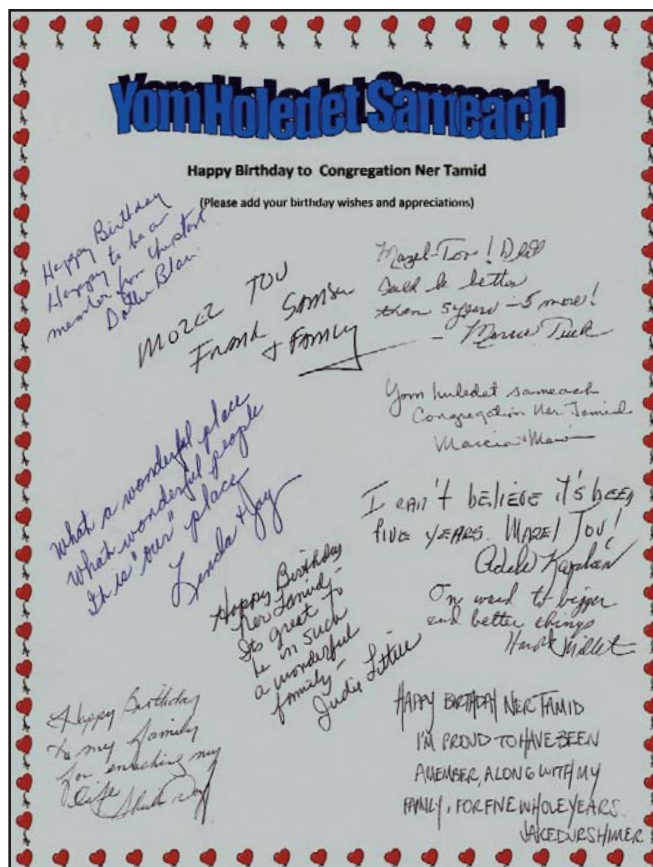 Yom Holedet Sameach
Happy Birthday to Congregation Ner Tamid
(Please add your birthday wishes and appreciations)
Happy Birthday
Happy to be a
member from the start
Blau
MOZEL TOV
FRANK
+ FAMILY
Mazel-Tov!
could be better
than 5 years - 5 more!
Yom huledet sameach
Congregation Ner Tamid
Marcia +
What a wonderful place
What wonderful people
This is "our" place
Linda & Jay
I can't believe it's been
five years. Mazel Tov!
Adele Kaplan
Happy Birthday
Ner Tamid -
Its great to
be in such
a wonderful
family -
Judie
On ward to bigger
and better things
Happy Birthday
to my family
for enriching my
life
HAPPY BIRTHDAY NER TAMID
I'M PROUD TO HAVE BEEN
A MEMBER, ALONG WITH MY
FAMILY, FOR FIVE WHOLE YEARS.
JAKE DURSHIMER